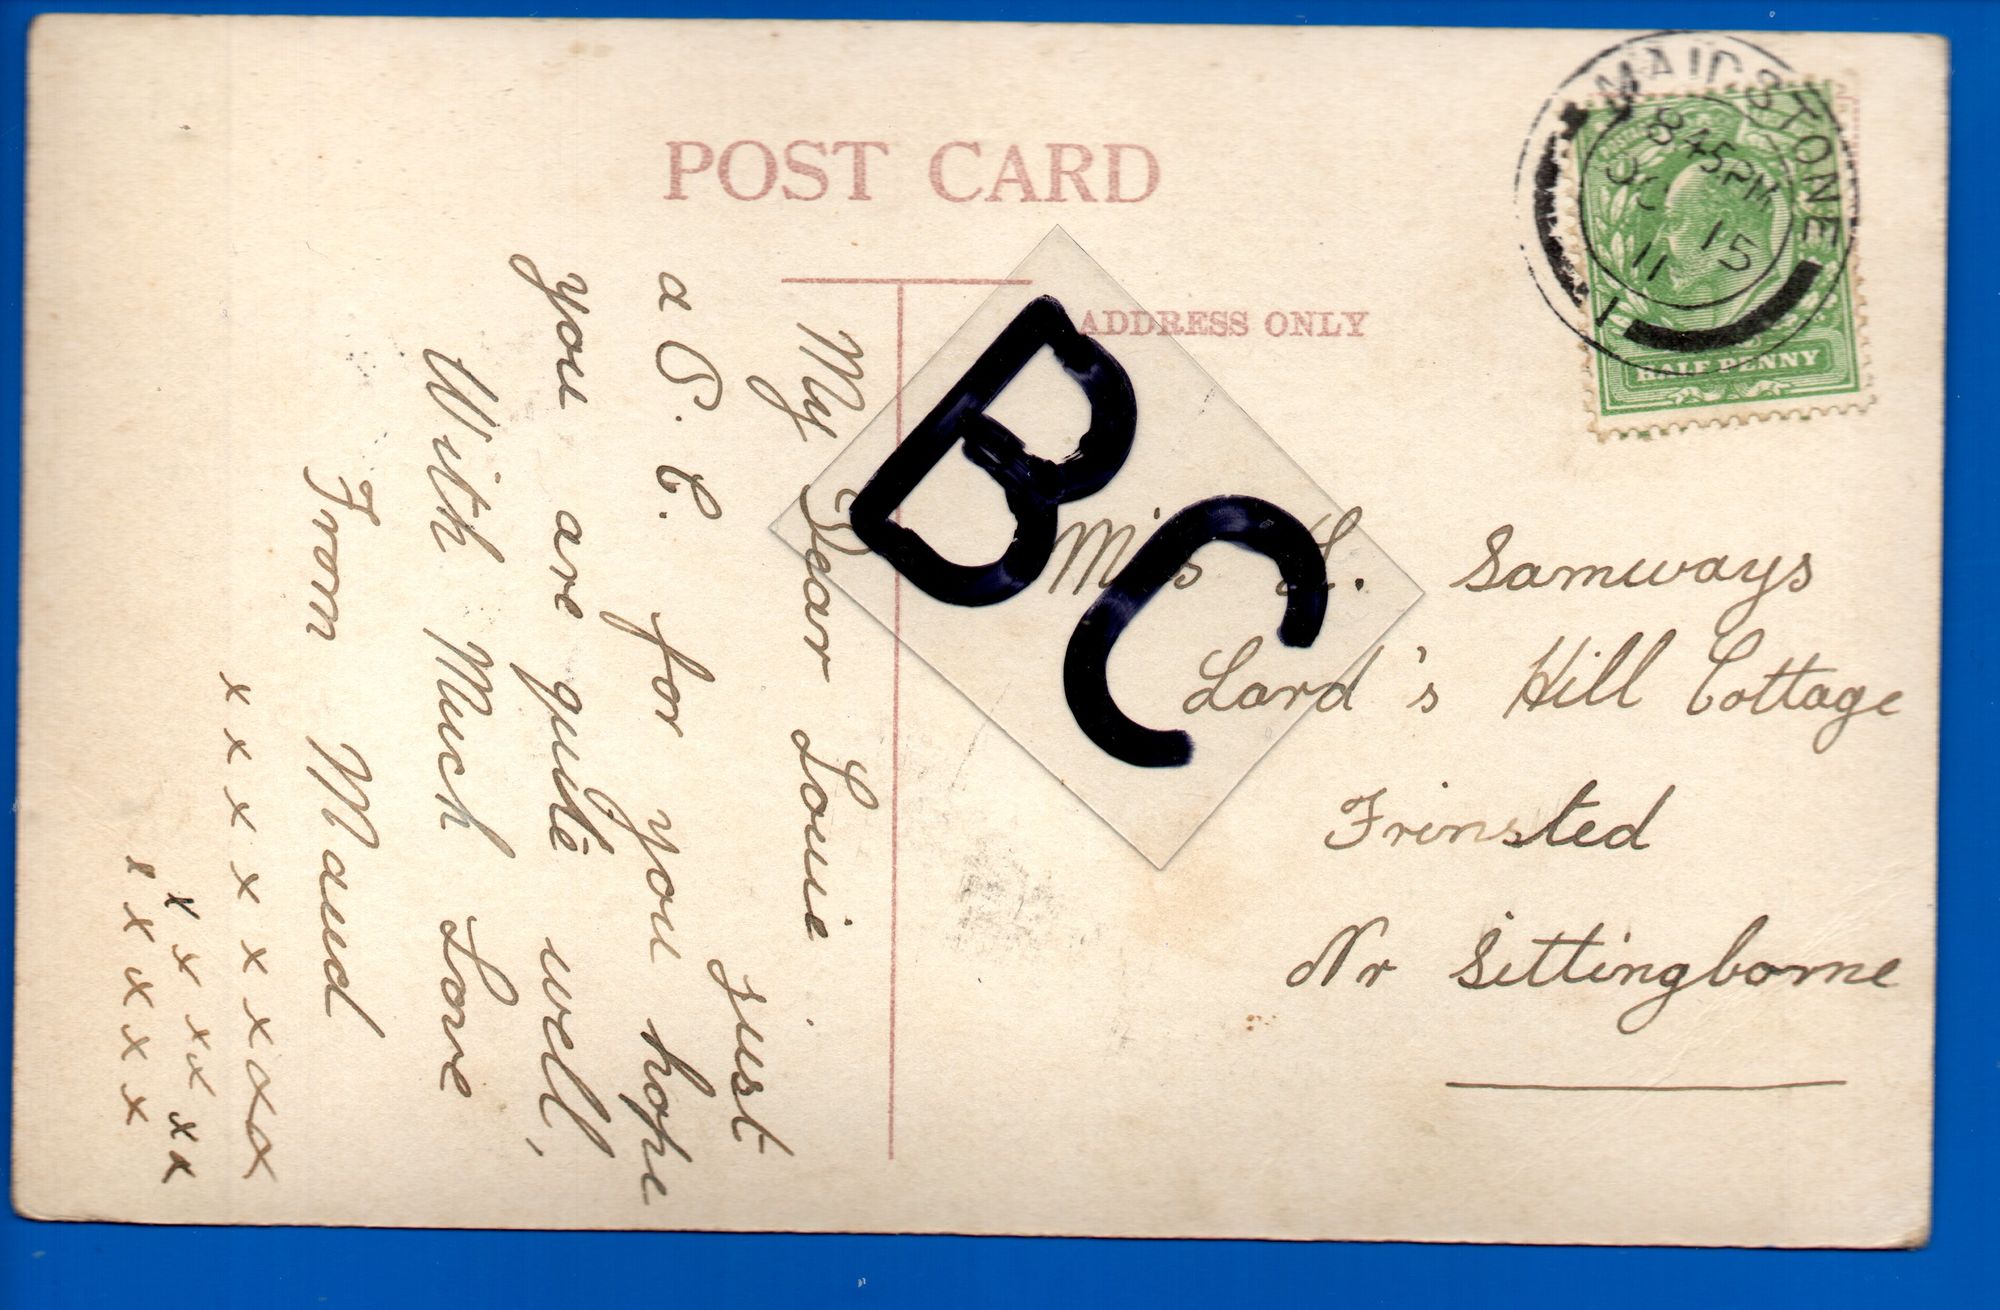 POST CARD
ADDRESS ONLY
MAIDSTONE
8 45 PM
15
11
1
HALF PENNY
BC
Miss L. Samways
Lord's Hill Cottage
Frinsted
Nr Sittingborne
My Dear Louie
just
a P. C. for you hope
you are quite well,
With Much Love
From Maud
x x x x x x x x
x x x x x x
x x x x x